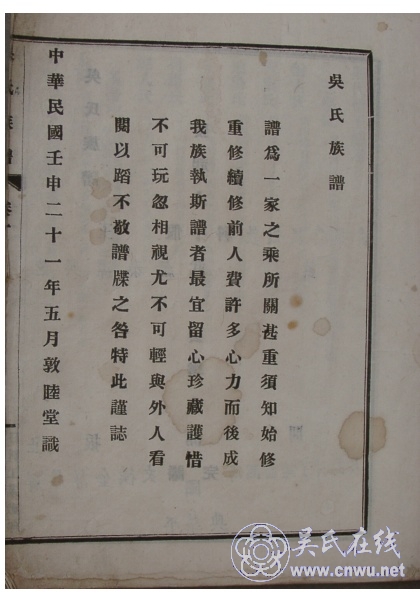 吳氏族譜
譜爲一家之乘所關甚重須知始修
重修續修前人費許多心力而後成
我族執斯譜者最宜留心珍藏護惜
不可玩忽相視尤不可輕與外人看
閱以蹈不敬譜牒之咎特此謹誌
中華民國壬申二十一年五月敦睦堂識
吳氏族譜
吴氏在线
www.cnwu.net